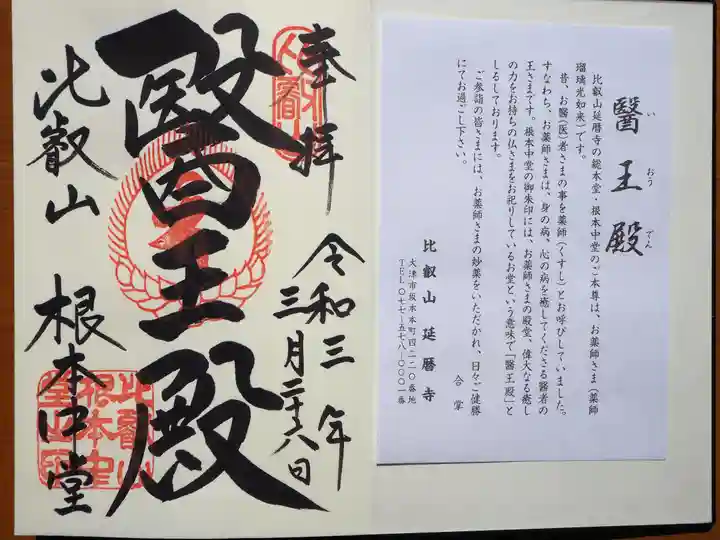 醫王殿
いおうでん
比叡山延暦寺の総本堂・根本中堂のご本尊は、お薬師さま(薬師
瑠璃光如来)です。
昔、お醫(医)者さまの事を薬師(くすし)とお呼びしていました。
すなわち、お薬師さまは、身の病、心の病を癒してくださる醫者の
王さまです。根本中堂の御朱印には、お薬師さまの殿堂、偉大なる癒し
の力をお持ちの仏さまをお祀りしているお堂という意味で「醫王殿」と
しるしております。
ご参詣の皆さまには、お薬師さまの妙薬をいただかれ、日々ご健勝
にてお過ごし下さい。
合掌
比叡山延暦寺
大津市坂本本町四二二〇番地
TEL〇七七-五七八-〇〇〇一番
奉拝
令和三年
三月二十八日
醫王殿
比叡山
根本中堂
比叡山